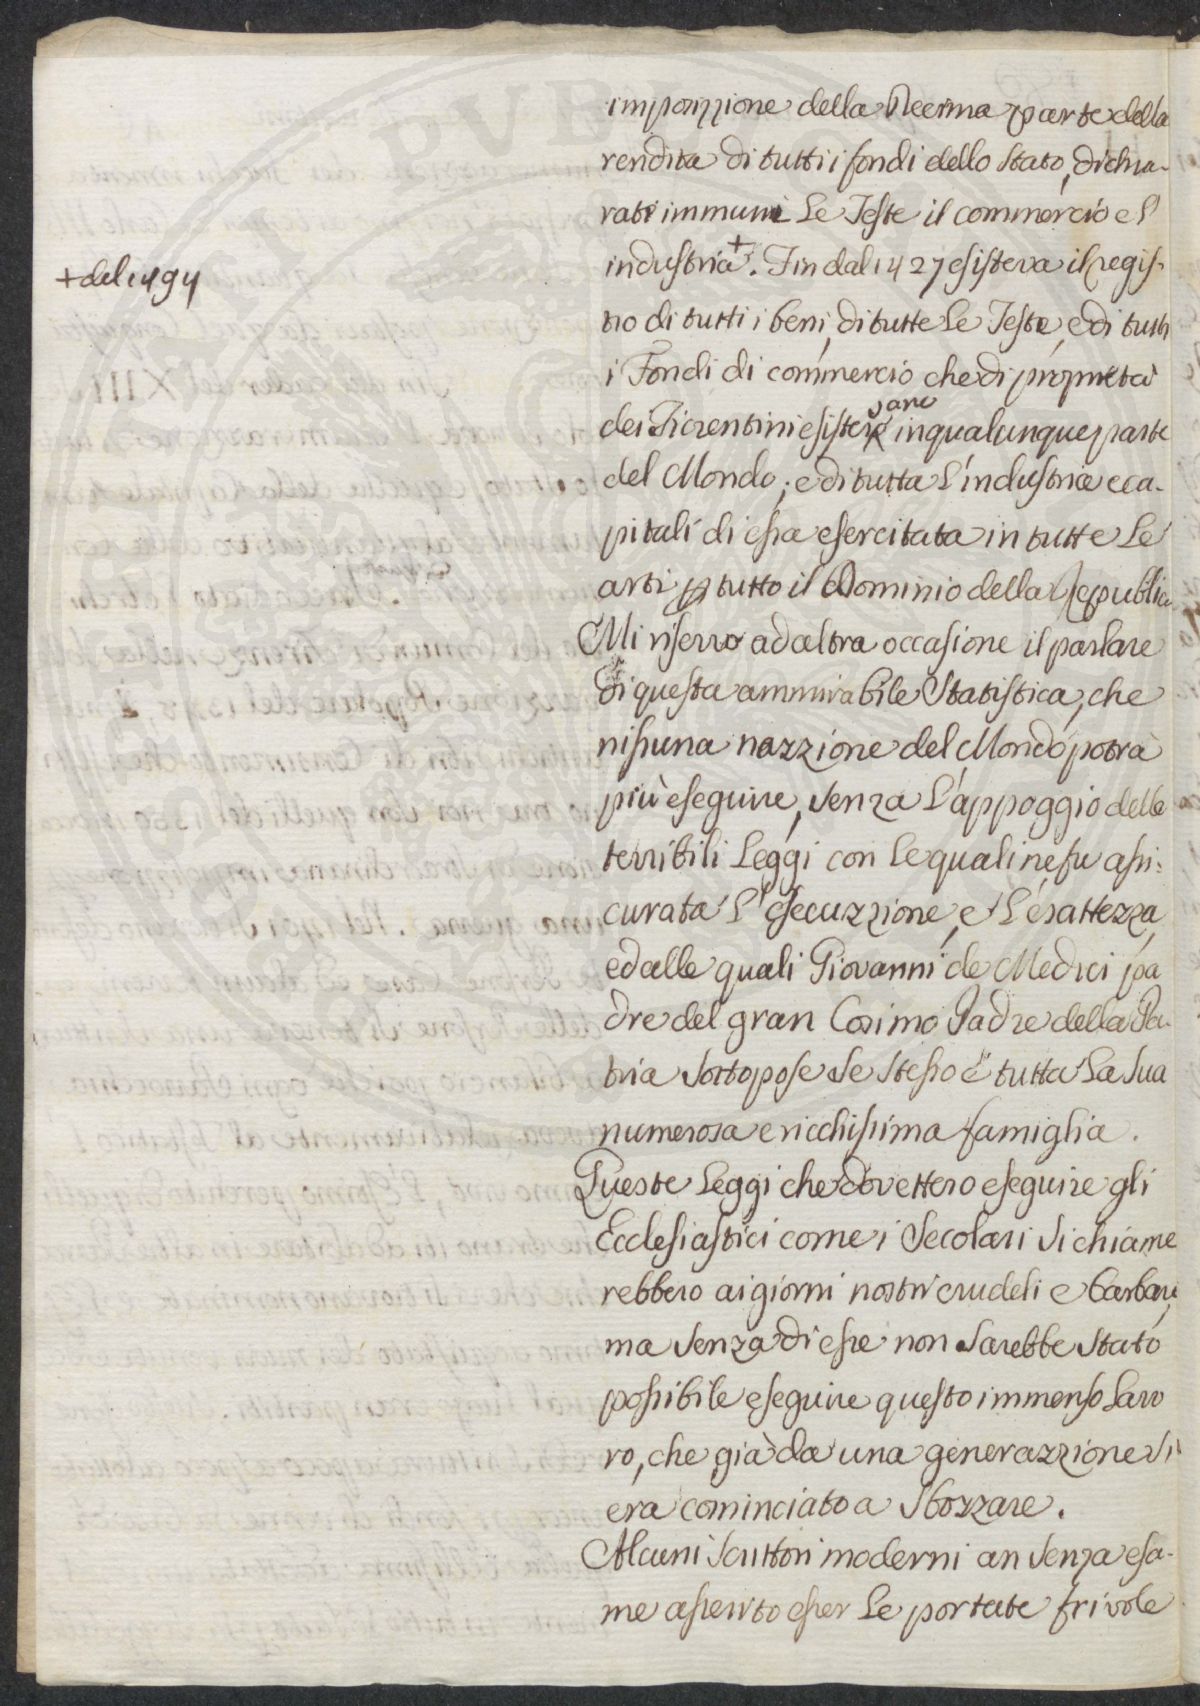 imposizzione della Decima parte della
rendita di tutti i fondi dello Stato, dichia-
rati immuni le Teste il commercio e l'
industria +. Fin dal 1427 esisteva il regis-
+ del 1494
tro di tutti i beni, di tutte le Teste, e di tutti
i Fondi di commercio che di proprietà
dei Fiorentini esistessano in qualunque parte
del Mondo, e di tutta l'industria e ca-
pitali di essa esercitata in tutte le
arti p tutto il Dominio della Republica
Mi riservo ad altra occasione il parlare
di questa ammirabile Statistica, che
nissuna nazzione del Mondo potrà
più eseguire, senza l'appoggio delle
terribili Leggi con le quali ne fu assi-
curata l'esecuzzione, e l'esattezza,
ed alle quali Giovanni de Medici pa
dre del gran Cosimo Padre della Pa-
tria sottopose se stesso e tutta la sua
numerosa e ricchissima famiglia.
Queste Leggi che dovettero eseguire gli
Ecclesiastici come i Secolari si chiame
rebbero ai giorni nostri crudeli e barbare,
ma senza di esse non sarebbe stato
possibile eseguire questo immenso lavo
ro, che già da una generazzione si
era cominciato a sbozzare.
Alcuni scrittori moderni an senza esa-
me asserito esser le portate frivole